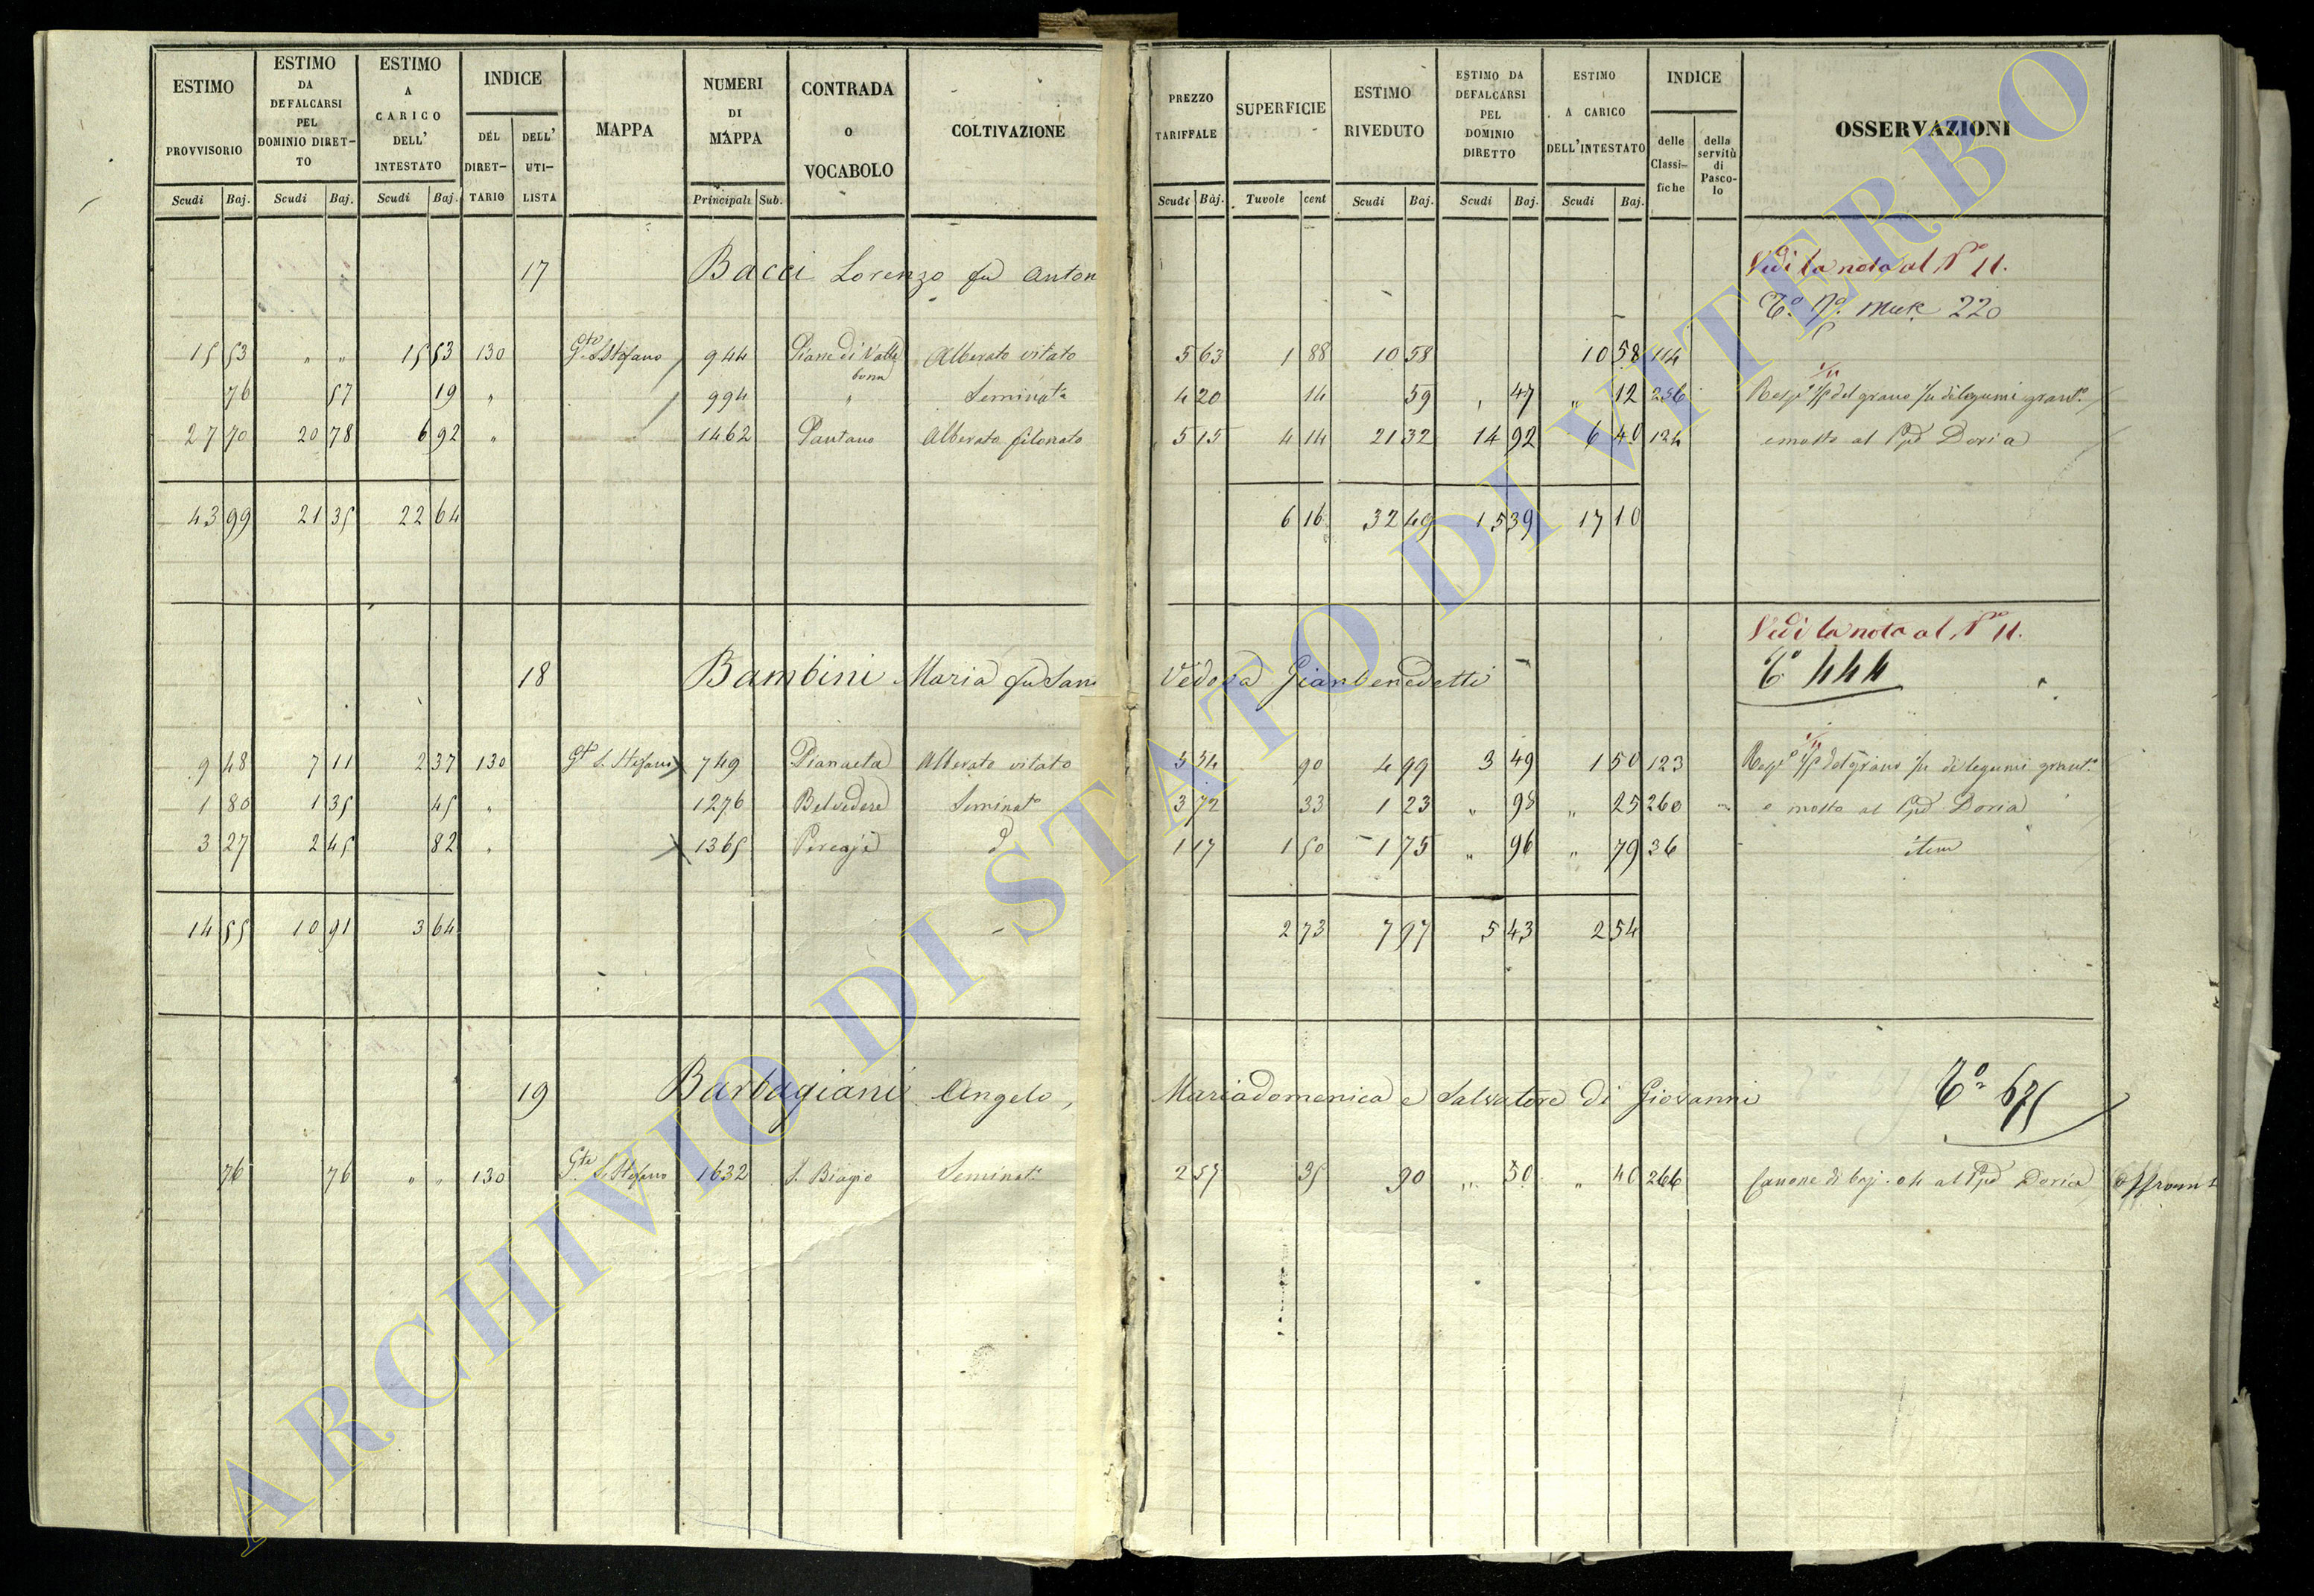 ESTIMO PROVVISORIO Scudi Baj.
ESTIMO DA DEFALCARSI PEL DOMINIO DIRETTO Scudi Baj.
ESTIMO A CARICO DELL' INTESTATO Scudi Baj.
INDICE DEL DIRETTARIO DELL' UTILISTA
MAPPA
NUMERI DI MAPPA Principali Sub.
CONTRADA O VOCABOLO
COLTIVAZIONE
PREZZO TARIFFALE Scudi Baj.
SUPERFICIE Tuvole cent
ESTIMO RIVEDUTO Scudi Baj.
ESTIMO DA DEFALCARSI PEL DOMINIO DIRETTO Scudi Baj.
ESTIMO A CARICO DELL'INTESTATO Scudi Baj.
INDICE delle Classifiche della servitù di Pascolo
OSSERVAZIONI
Vedi la nota al N° 11.
17 Bacci Lorenzo fu Anton
220
15 53 " " 15 53 130 Gte S. Stefano 944 Piane di Valle buona Alberato vitato 5 63 1 88 10 58 10 58 114
76 57 19 " 994 " Seminato 4 20 14 59 " 47 " 12 256
27 70 20 78 6 92 " 1462 Pantano Alberato filonato 5 15 4 14 21 32 14 92 6 40 124 e mosto al Ppe Doria
43 99 21 35 22 64 6 16 32 49 15 39 17 10
Vedi la nota al N° 11.
18 Bambini Maria fu San Vedova Gianbenedetti
T° 444
9 48 7 11 2 37 130 Gte S. Stefano 749 Pianaeta Alberato vitato 5 54 90 4 99 3 49 1 50 123
1 80 1 35 45 " 1276 Belvedere Seminato 3 72 33 1 23 " 98 " 25 260 e mosto al Ppe Doria
3 27 2 45 82 " 1365 d° 1 17 1 50 1 75 " 96 " 79 36 item
14 55 10 91 3 64 2 73 7 97 5 43 2 54
19 Barbagiani Angelo, Mariadomenica e Salvatore di Giovanni T° 675
76 76 " " 130 Gte S. Stefano 1632 S. Biagio Seminato 2 57 35 90 " 50 " 40 266 Canone di baj. 04 al Ppe Doria
ARCHIVIO DI STATO DI VITERBO